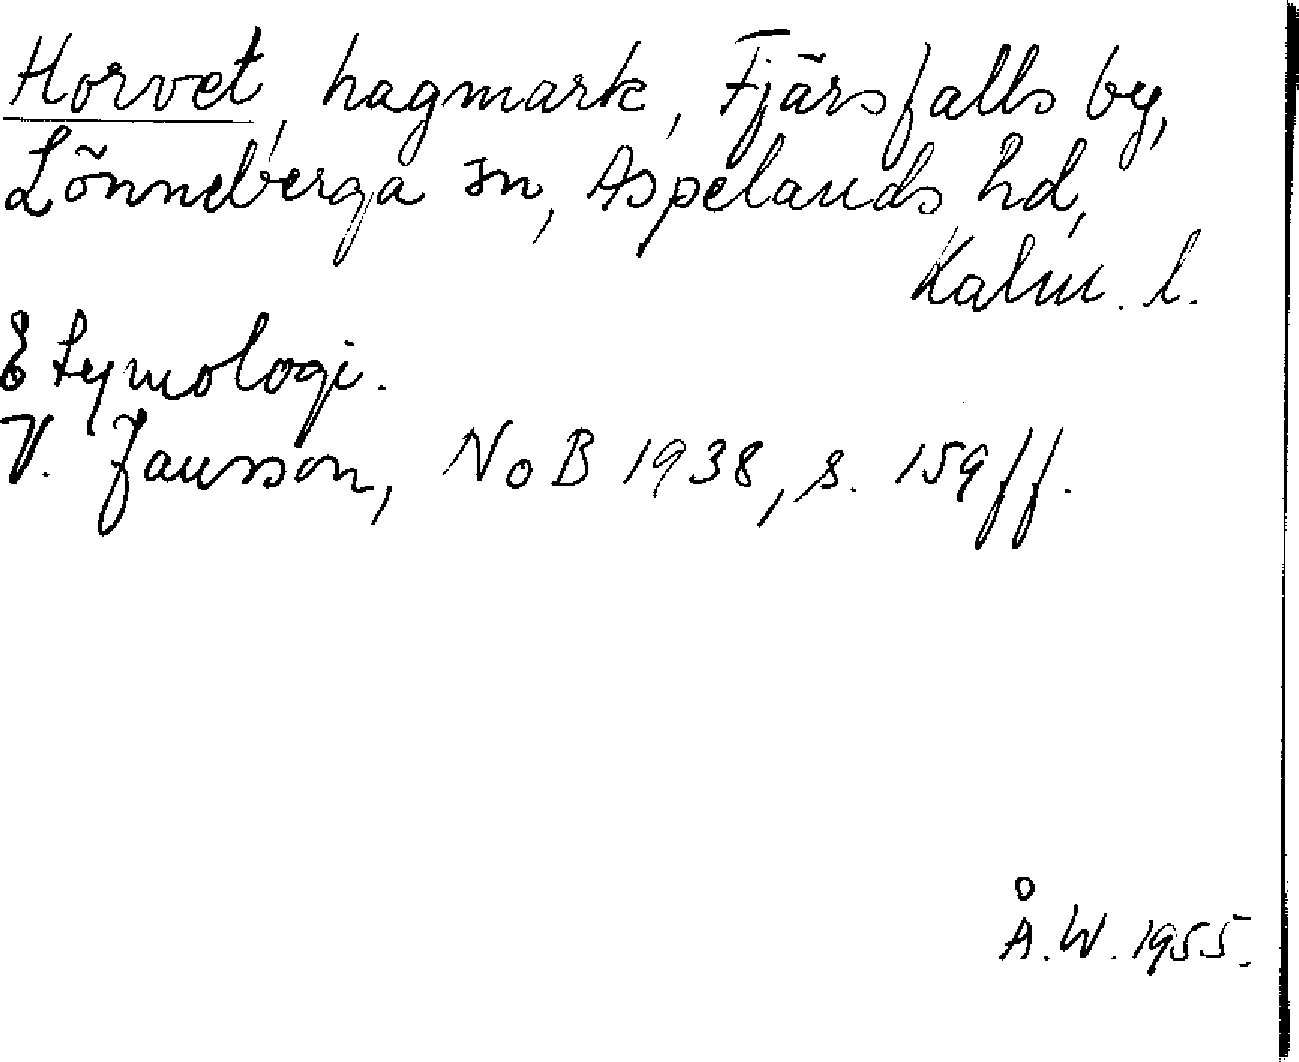 Horvet, hagmark, Fjärsfalls by,
Lönneberga sn, Aspelands hd,
Kalm. l.
Etymologi.
V. Jansson, NoB 1938, s. 159 ff.
Å.W. 1955.